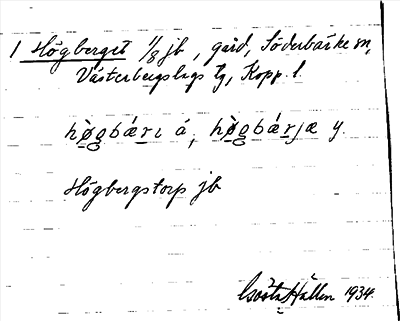 1 Högberget 1/8 jb, gård, Söderbärke sn,
Västerbergslags tg, Kopp. l.
hø̀gbári á, hø̀gbárjæ y.
Högbergstorp jb
Gösta Hallén 1934.